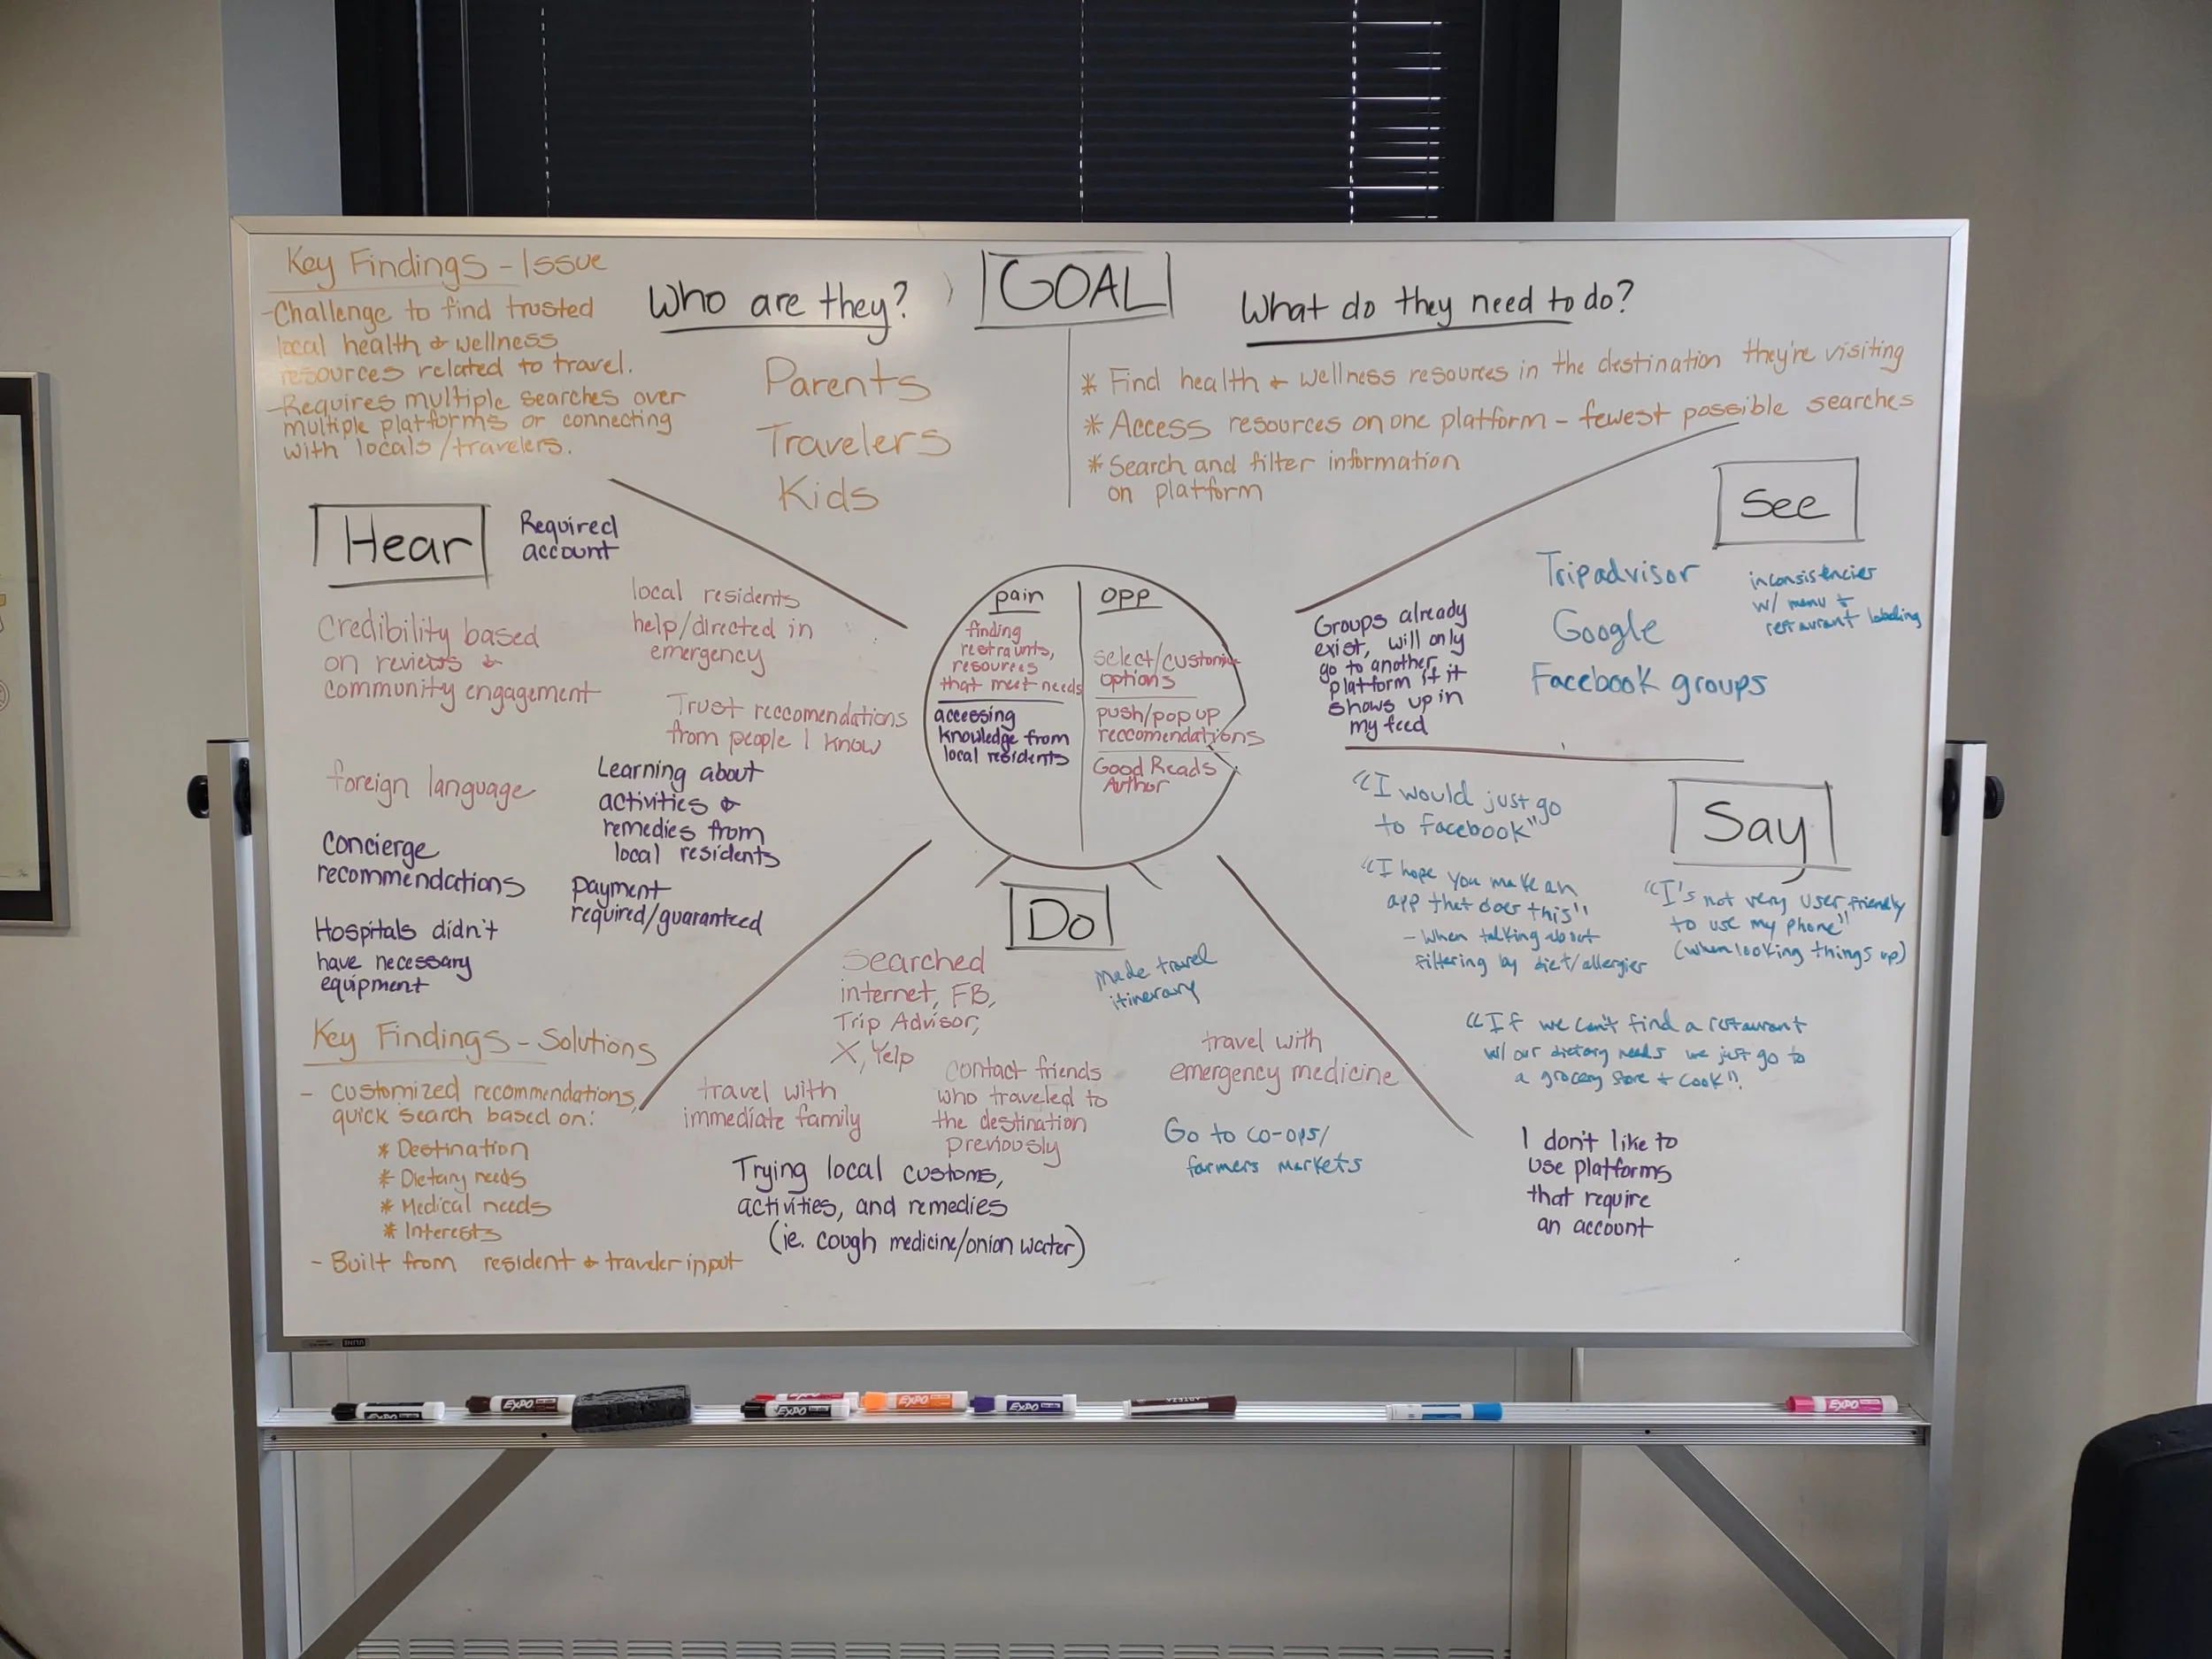 Key Findings - Issue
- Challenge to find trusted
local health & wellness
resources related to travel.
- Requires multiple searches over
multiple platforms or connecting
with locals/travelers.
Who are they?
Parents
Travelers
Kids
GOAL
What do they need to do?
* Find health & wellness resources in the destination they're visiting
* Access resources on one platform - fewest possible searches
* Search and filter information
on platform
Hear
Required
account
local residents
help/directed in
emergency
Credibility based
on reviews &
community engagement
Trust reccomendations
from people I know
foreign language
Learning about
activities &
remedies from
local residents
Concierge
recommendations
payment
required/guaranteed
Hospitals didn't
have necessary
equipment
pain
finding
restraunts,
resources
that meet needs
accessing
knowledge from
local residents
opp
select/customize
options
push/pop up
reccomendations
Good Reads
Author
See
Groups already
exist, will only
go to another
platform if it
shows up in
my feed
Tripadvisor
Google
Facebook groups
inconsistencies
w/ menu &
restaurant labeling
Say
"I would just go
to facebook"
"I hope you make an
app that does this"
- When talking about
filtering by diet/allergies
"I's not very user friendly
to use my phone"
(when looking things up)
"If we can't find a restaurant
w/ our dietary needs we just go to
a grocery store + cook".
I don't like to
use platforms
that require
an account
Do
Searched
internet, FB,
Trip Advisor,
X, Yelp
made travel
itinerary
travel with
emergency medicine
contact friends
who traveled to
the destination
previously
travel with
immediate family
Go to co-ops/
farmers markets
Trying local customs,
activities, and remedies
(ie. cough medicine/onion water)
Key Findings - Solutions
- customized recommendations,
quick search based on:
* Destination
* Dietary needs
* Medical needs
* Interests
- Built from resident & traveler input
EXPO
EXPO
EXPO
EXPO
EXPO
EXPO
EXPO